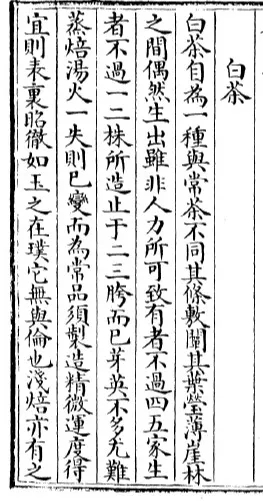 白茶
白茶自為一種與常茶不同其條敷闡其葉瑩薄崖林
之間偶然生出雖非人力所可致有者不過四五家生
者不過一二株所造止于二三胯而已芽英不多尤難
蒸焙湯火一失則已變而為常品須製造精微運度得
宜則表裏昭徹如玉之在璞它無與倫也淺焙亦有之